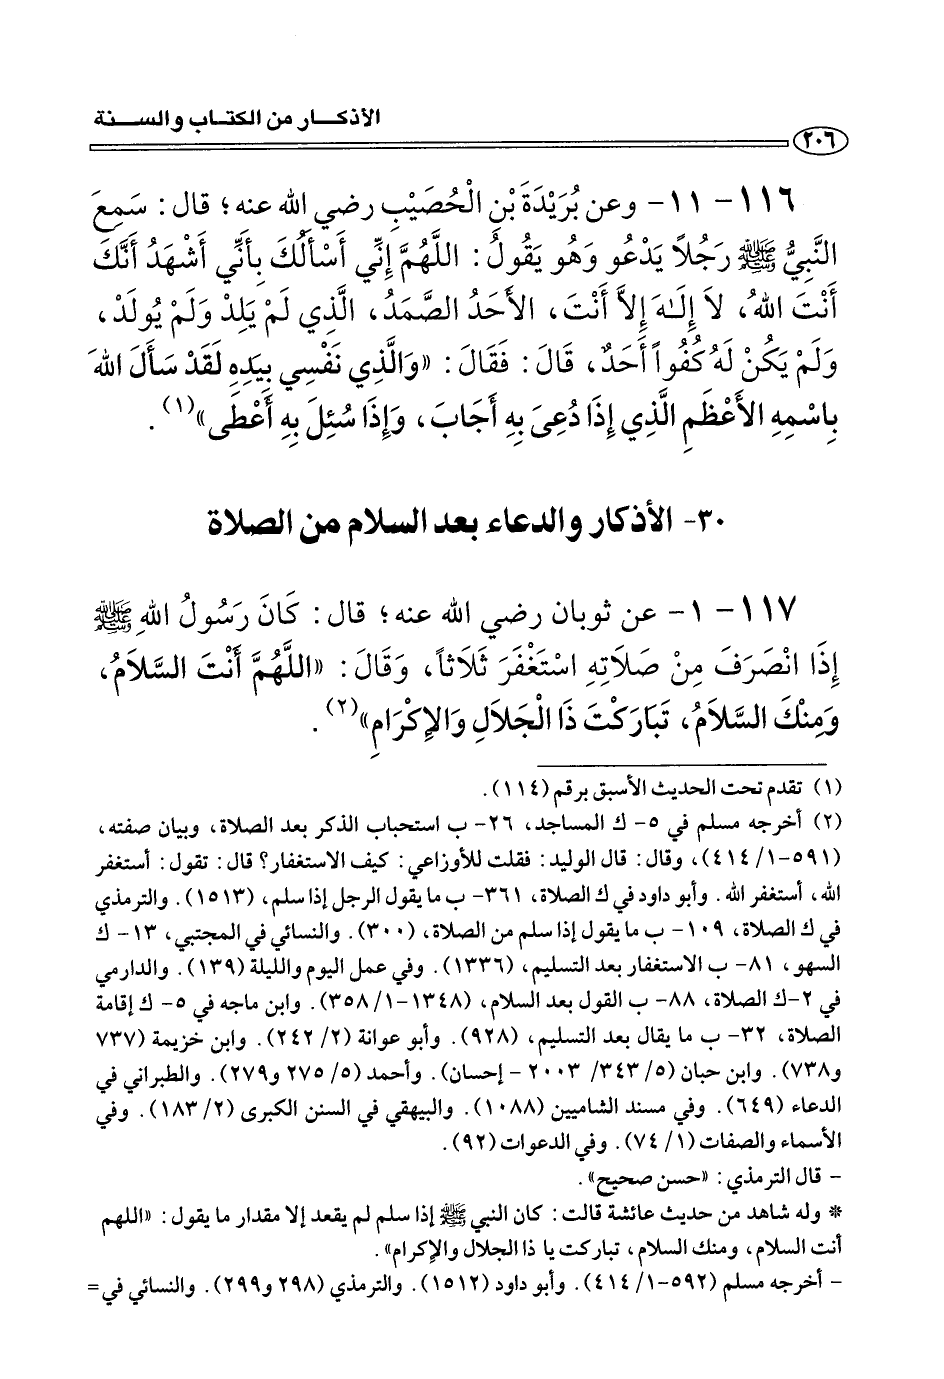 الأذكـــار من الكتـاب والســنة
٢٠٦
١١٦- ١١- وعن بُرَيْدَةَ بْنِ الْحُصَيْبِ رضي الله عنه؛ قال: سَمِعَ
النَّبِيُّ ﷺ رَجُلاً يَدْعُو وَهُو يَقُولُ: اللَّهُمَّ إِنِّي أَسْأَلُكَ بِأَنِّي أَشْهَدُ أَنَّكَ
أَنْتَ اللهُ، لاَ إِلَـٰهَ إِلاَّ أَنْتَ، الأَحَدُ الصَّمَدُ، الَّذِي لَمْ يَلِدْ وَلَمْ يُولَدْ،
وَلَمْ يَكُنْ لَهُ كُفُواً أَحَدٌ، قَالَ: فَقَالَ: «وَالَّذِي نَفْسِي بِيَدِهِ لَقَدْ سَأَلَ اللهَ
بِاسْمِهِ الأَعْظَمِ الَّذِي إِذَا دُعِىَ بِهِ أَجَابَ، وَإِذَا سُئِلَ بِهِ أَعْطَى»(١).
٣٠- الأذكار والدعاء بعد السلام من الصلاة
١١٧- ١- عن ثوبان رضي الله عنه؛ قال: كَانَ رَسُولُ اللهِ ﷺ
إِذَا انْصَرَفَ مِنْ صَلَاتِهِ اسْتَغْفَرَ ثَلَاثاً، وَقَالَ: «اللَّهُمَّ أَنْتَ السَّلاَمُ،
وَمِنْكَ السَّلاَمُ، تَبَارَكْتَ ذَا الْجَلَالِ وَالإِكْرَامِ»(٢).
(١) تقدم تحت الحديث الأسبق برقم (١١٤).
(٢) أخرجه مسلم في ٥- ك المساجد، ٢٦- ب استحباب الذكر بعد الصلاة، وبيان صفته،
(٥٩١-١/ ٤١٤)، وقال: قال الوليد: فقلت للأوزاعي: كيف الاستغفار؟ قال: تقول: أستغفر
الله، أستغفر الله. وأبو داود في ك الصلاة، ٣٦١- ب ما يقول الرجل إذا سلم، (١٥١٣). والترمذي
في ك الصلاة، ١٠٩- ب ما يقول إذا سلم من الصلاة، (٣٠٠). والنسائي في المجتبي، ١٣- ك
السهو، ٨١- ب الاستغفار بعد التسليم، (١٣٣٦). وفي عمل اليوم والليلة (١٣٩). والدارمي
في ٢-ك الصلاة، ٨٨- ب القول بعد السلام، (١٣٤٨-١/ ٣٥٨). وابن ماجه في ٥- ك إقامة
الصلاة، ٣٢- ب ما يقال بعد التسليم، (٩٢٨). وأبو عوانة (٢/ ٢٤٢). وابن خزيمة (٧٣٧
و٧٣٨). وابن حبان (٥/ ٣٤٣/ ٢٠٠٣ - إحسان). وأحمد (٥/ ٢٧٥ و٢٧٩). والطبراني في
الدعاء (٦٤٩). وفي مسند الشاميين (١٠٨٨). والبيهقي في السنن الكبرى (٢/ ١٨٣). وفي
الأسماء والصفات (١/ ٧٤). وفي الدعوات (٩٢).
- قال الترمذي: «حسن صحيح».
* وله شاهد من حديث عائشة قالت: كان النبي ﷺ إذا سلم لم يقعد إلا مقدار ما يقول: «اللهم
أنت السلام، ومنك السلام، تباركت يا ذا الجلال والإكرام».
- أخرجه مسلم (٥٩٢-١/ ٤١٤). وأبو داود (١٥١٢). والترمذي (٢٩٨ و٢٩٩). والنسائي في=